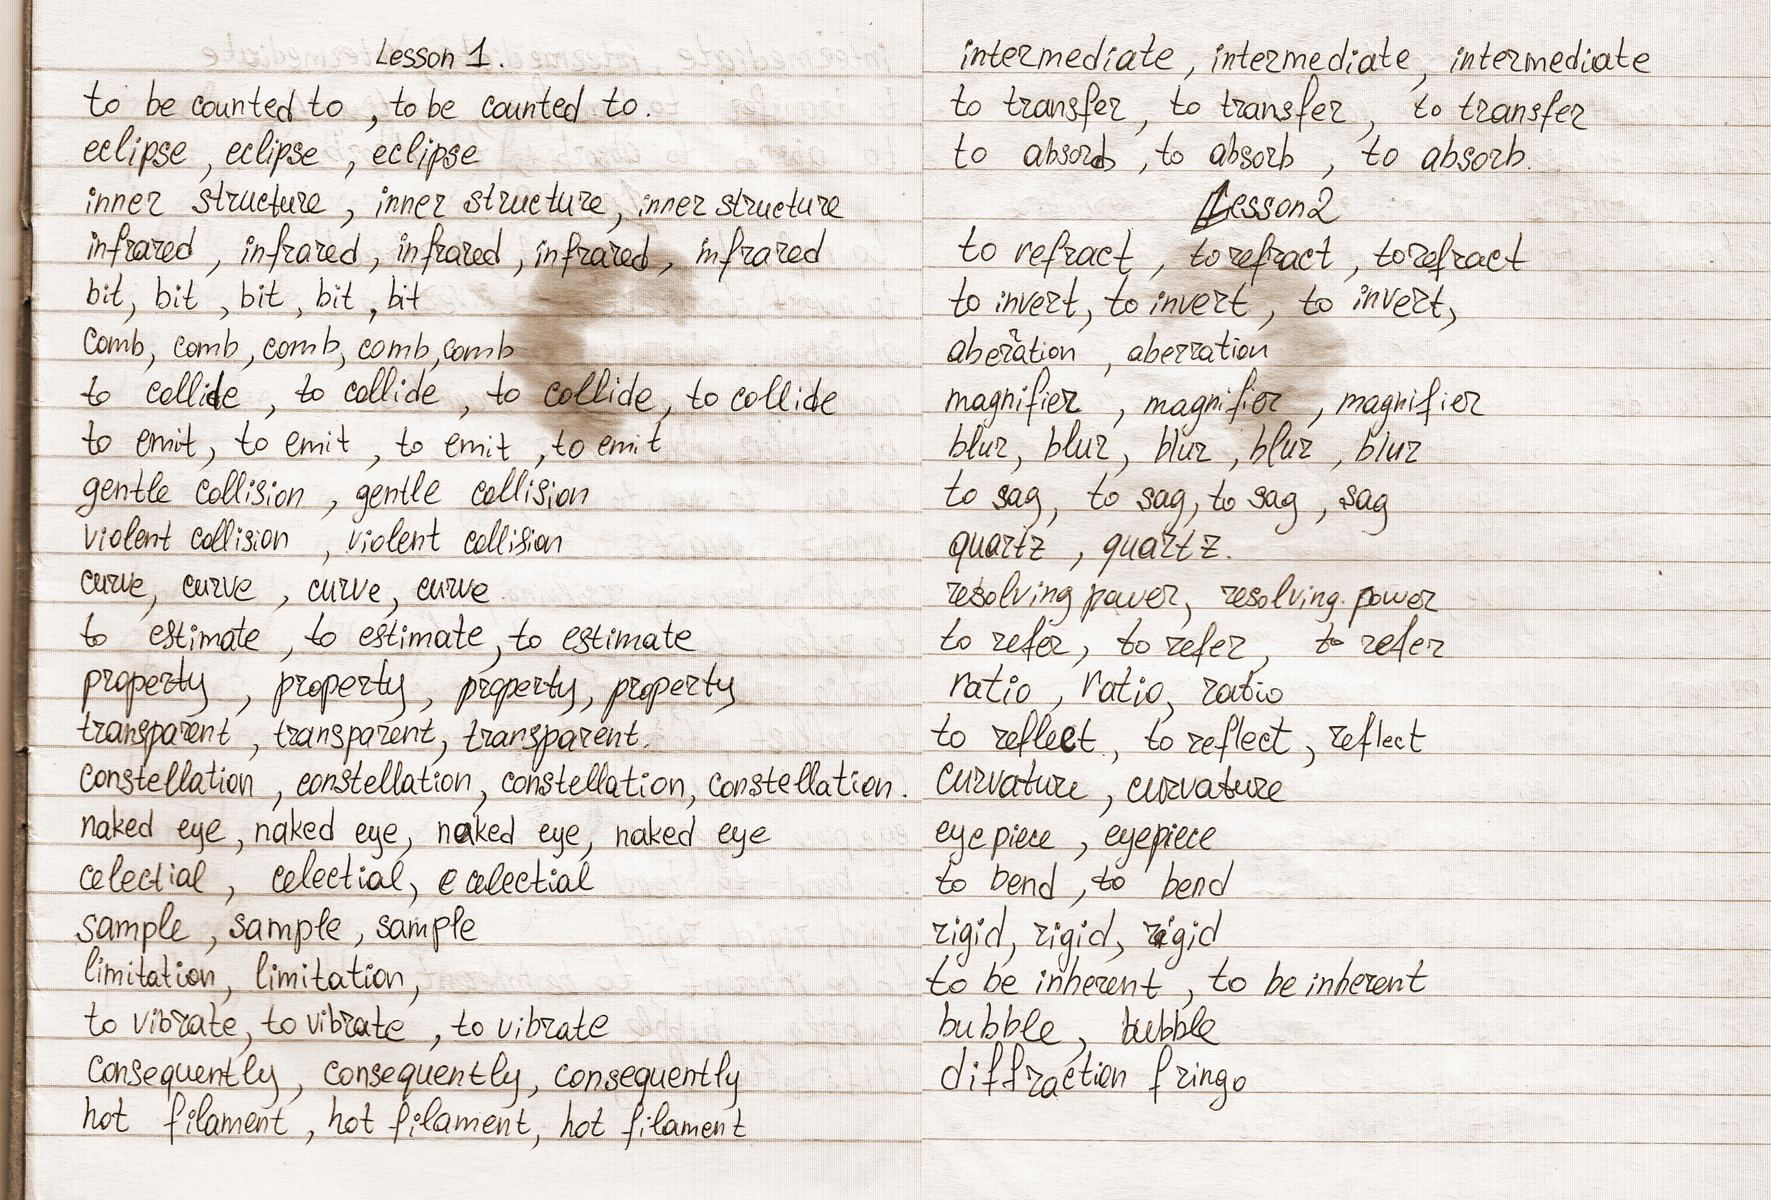 Lesson 1.
to be counted to , to be counted to.
eclipse , eclipse , eclipse
inner structure , inner structure, inner structure
infrared , infrared, infrared , infrared , infrared
bit, bit , bit , bit , bit
comb, comb, comb, comb, comb
to collide , to collide , to collide, to collide
to emit, to emit , to emit , to emit
gentle collision , gentle collision
violent collision , violent collision
curve, curve , curve, curve
to estimate , to estimate, to estimate
property , property , property, property
transparent , transparent, transparent.
constellation , constellation, constellation, constellation.
naked eye, naked eye, naked eye, naked eye
celectial , celectial, e celectial
sample , sample , sample
limitation, limitation,
to vibrate, to vibrate , to vibrate
consequently, consequently, consequently
hot filament , hot filament, hot filament
intermediate , intermediate, intermediate
to transfer, to transfer , to transfer
to absorb , to absorb , to absorb.
Lesson 2
to refract , to refract , to refract
to invert, to invert , to invert,
aberation , aberration
magnifier , magnifier , magnifier
blur, blur, blur , blur , blur
to sag, to sag, to sag , sag
quartz , quartz.
resolving power, resolving power
to refer, to refer, to refer
ratio , ratio, ratio
to reflect , to reflect , reflect
curvature , curvature
eye piece , eyepiece
to bend , to bend
rigid, rigid, rigid
to be inherent , to be inherent
bubble, bubble
diffraction fringo